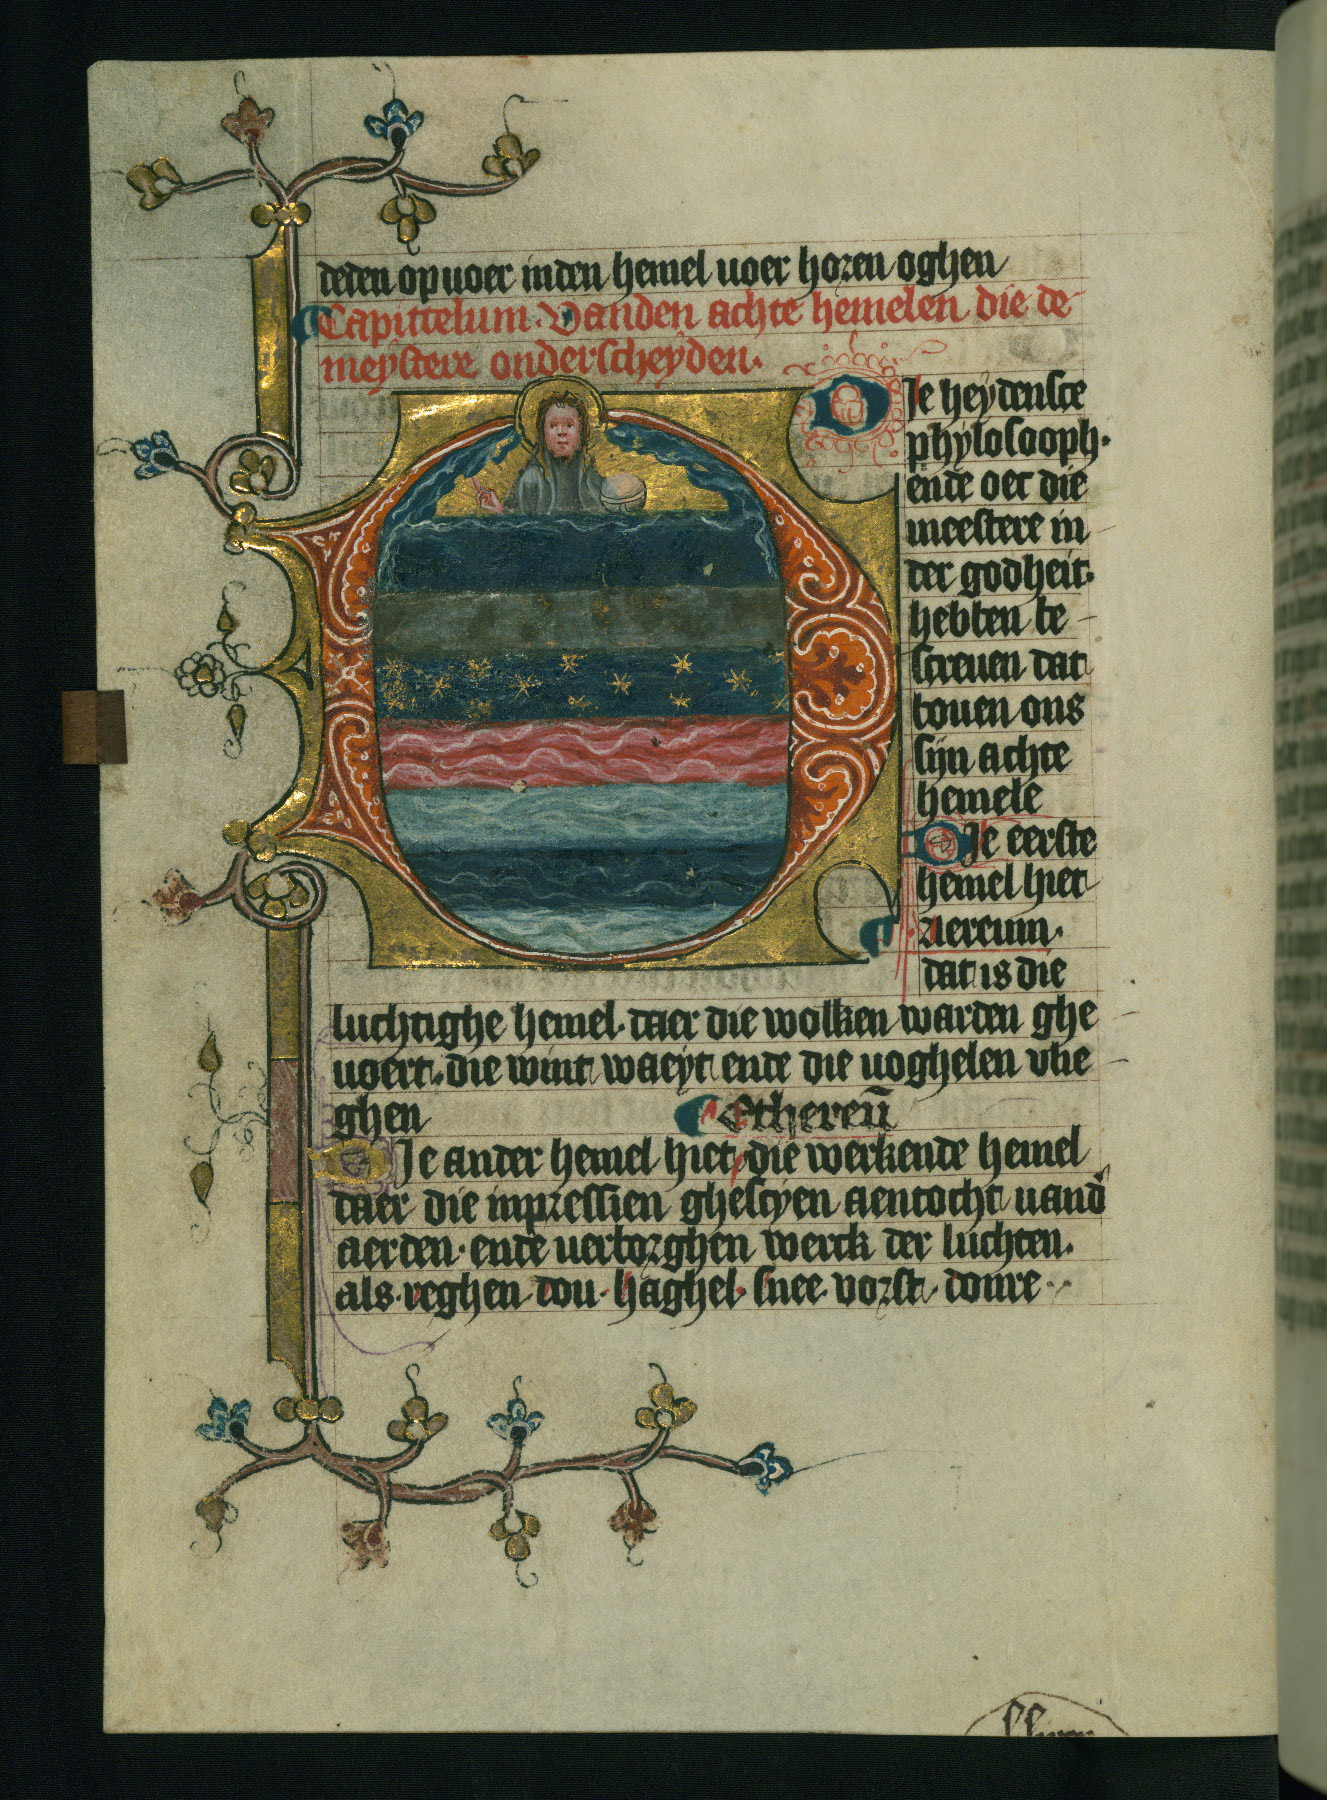 deden op uoer in den hemel uoer horen oghen
Capittelum. Vanden achte hemelen die de
meystere onderscheyden.
Die heydensce
phylosooph.
ende oec die
meestere in
der godheit.
hebben be
screuen dat
bouen ons
sijn achte
hemele
Die eerste
hemel hiet
aereum.
dat is die
luchtighe hemel. daer die wolken warden ghe
uoert. die wint waeyt ende die uoghelen vlie
ghen
Ethereū
Die ander hemel hiet die werkende hemel
daer die inpressien ghescyen aentocht uand
aerden. ende uerborghen werck der luchten.
als. reghen. dou. haghel. snee. vorst. donre